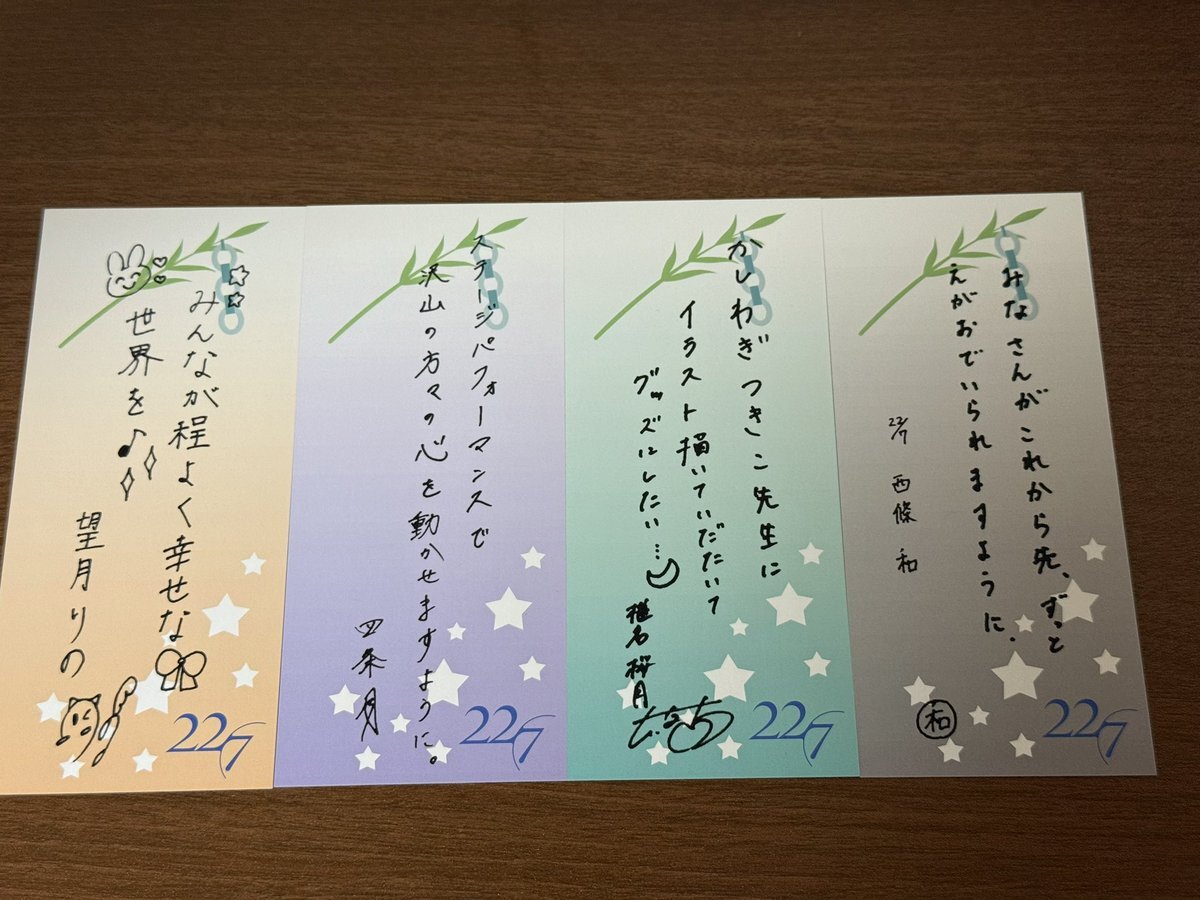 みんなが程よく幸せな
世界を♪
望月りの
22/7
ステージパフォーマンスで
沢山の方々の心を動かせますように。
四条月
22/7
かしわぎつきこ先生に
イラスト描いていだだいて
グッズにしたい…
椎名桜月
22/7
みなさんがこれから先、ずっと
えがおでいられますように.
22/7 西條和
和
22/7